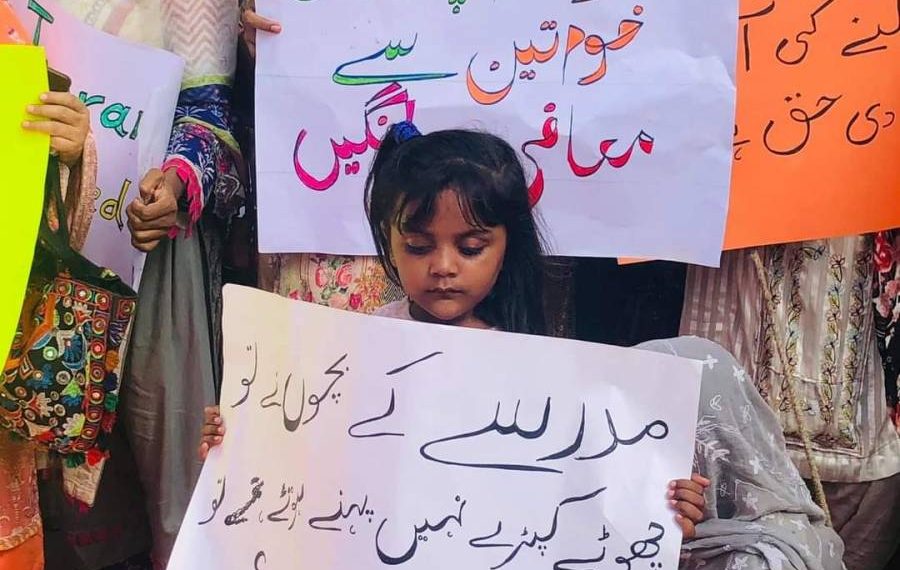 خواتین سے
معافی مانگیں
دی حق ہے
مدرسے کے بچوں نے تو
چھوٹے کپڑے نہیں پہنے ہوئے تھے تو
؟